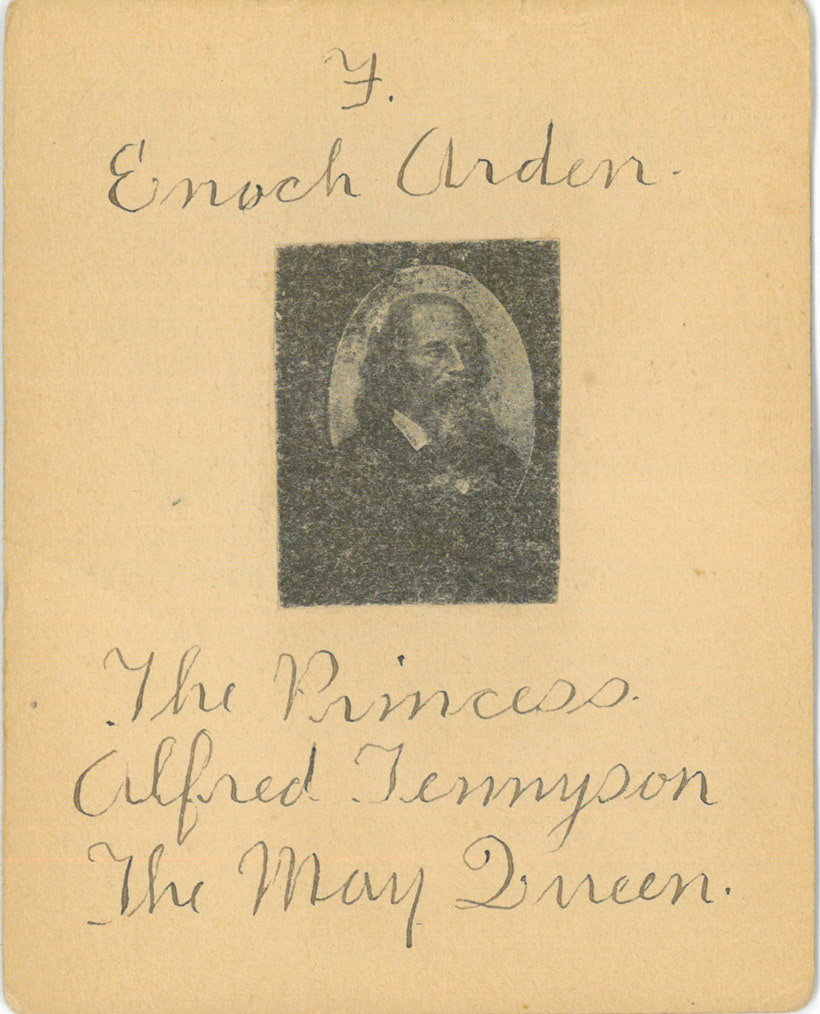 F.
Enoch Arden.
The Princess.
Alfred Tennyson
The May Queen.